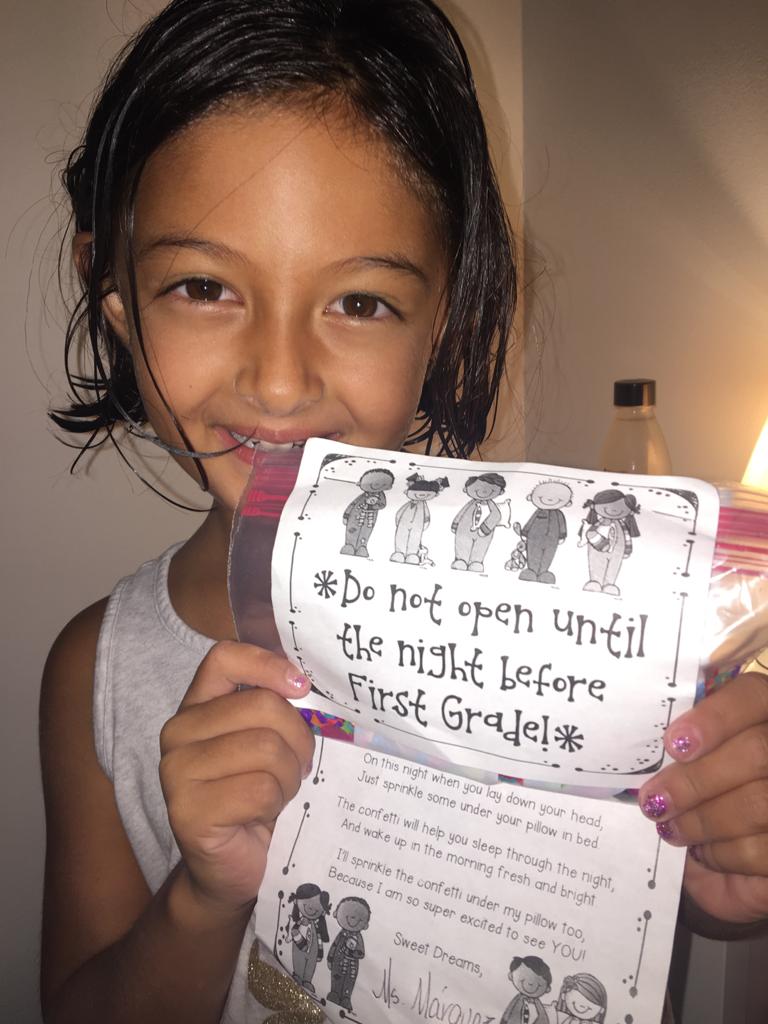 *Do not open until
the night before
First Grade!*
On this night when you lay down your head,
Just sprinkle some under your pillow in bed
The confetti will help you sleep through the night,
And wake up in the morning fresh and bright
I'll sprinkle the confetti under my pillow too,
Because I am so super excited to see YOU!
Sweet Dreams,
Ms. Márquez